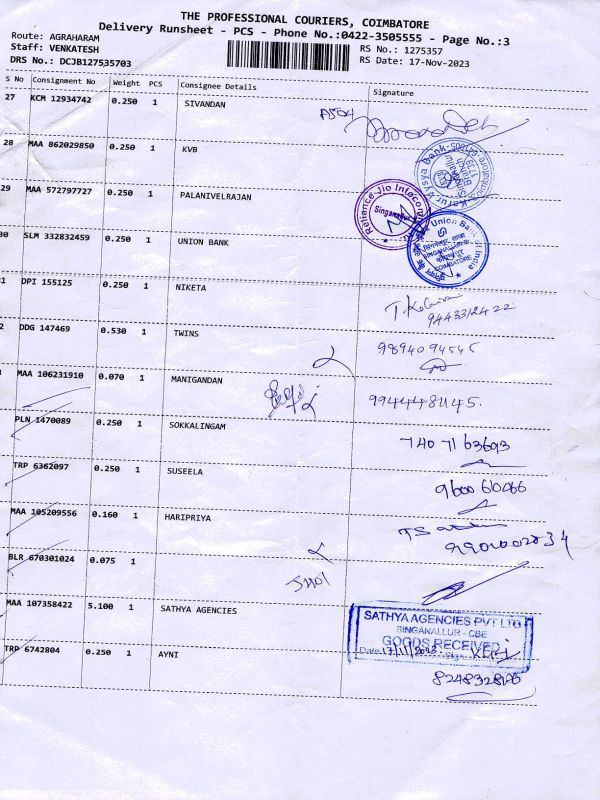 THE PROFESSIONAL COURIERS, COIMBATORE
Delivery Runsheet - PCS - Phone No.:0422-3505555 - Page No.:3
Route: AGRAHARAM
Staff: VENKATESH
DRS No.: DCJB127535703
RS No.: 1275357
RS Date: 17-Nov-2023
S No Consignment No Weight PCS Consignee Details Signature
27 KCM 12934742 0.250 1 SIVANDAN
28 MAA 862029850 0.250 1 KVB
Karur Vysya Bank
29 MAA 572797727 0.250 1 PALANIVELRAJAN
Reliance-Jio Infocom
Singanallur
30 SLM 332832459 0.250 1 UNION BANK
Union Bank of India
SINGANALLUR
COIMBATORE
1 DPI 155125 0.250 1 NIKETA
9443312422
2 DDG 147469 0.530 1 TWINS 9894094545
MAA 106231910 0.070 1 MANIGANDAN 9944481145.
PLN 1470089 0.250 1 SOKKALINGAM 7407163693
TRP 6362097 0.250 1 SUSEELA 9600660066
MAA 105209556 0.160 1 HARIPRIYA
BLR 670301024 0.075 1
MAA 107358422 5.100 1 SATHYA AGENCIES
SATHYA AGENCIES PVT LTD
SINGANALLUR - CBE
GOODS RECEIVED
Date 17/11/2023 Sign
TRP 6742804 0.250 1 AYNI